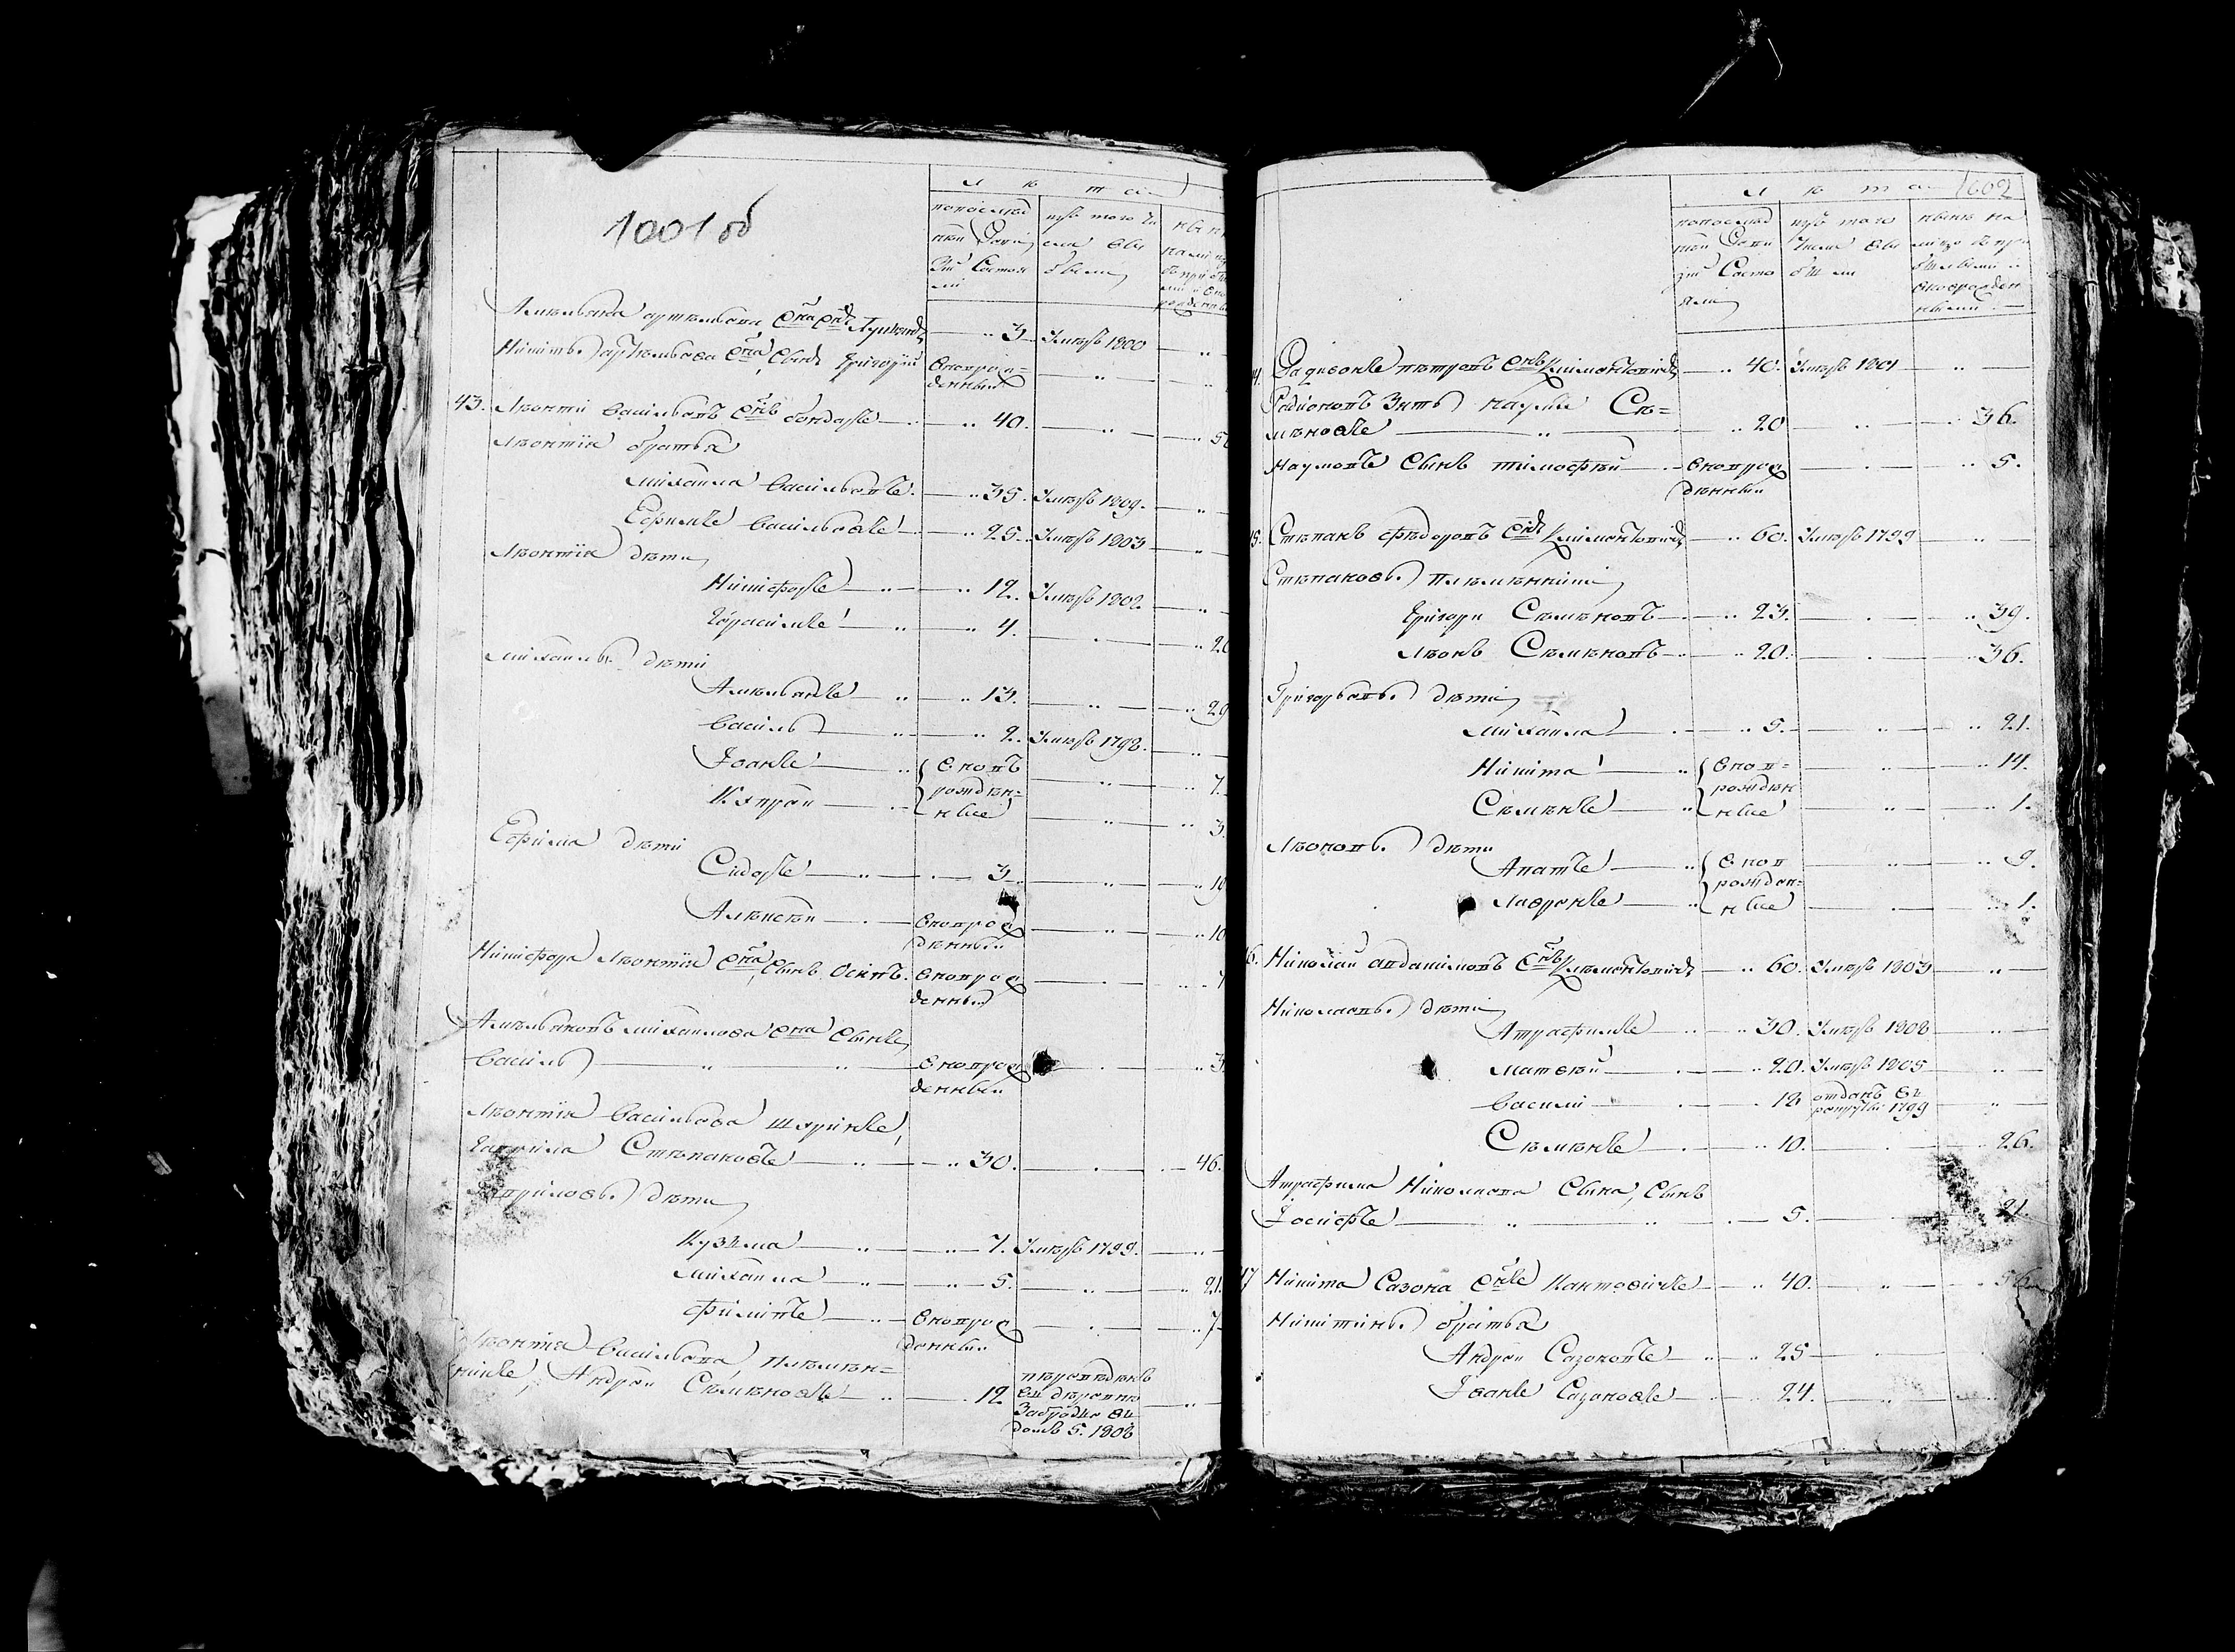 1001 об
лѣта
по последней ревизии состояли
изъ того числа выбыли
Амельяна артемьева сна снъ
3. Умеръ 1800
Никиты артемьева сна, сынъ Григорий
вновро-
денный
43. Леонтий васильевъ снъ бондарь 40.
Леонтия братья
михайла васильевъ. 35. Умеръ 1809.
Ефимъ васильевъ 25. Умеръ 1803
Леонтия дети
Никифоръ 12. Умеръ 1802.
Герасимъ 4.
михайлы дети
Амельянъ 13. 29
василь 2. Умеръ 1798.
Іванъ вновъ 7.
рожден-
Купрей ные 3.
Ефима дети
Сидоръ 3
Алексей вноврож
денный 10
Никифора леонтія сна, сынъ Осипъ. вноврож
денный
Амельяновъ михайлова сна сынъ,
василь вноврож 3
денный
Леонтия васильева шуринъ,
гаврила Степановъ 30. 46.
гавриловы дети
Кузьма 7. Умеръ 1799.
михайла 5. 21.
филипъ вноврож 7
денный
Леонтия васильева племен-
никъ, Андрей Семеновъ 12
переведенъ
въ деревню
въ
домъ 5. 1808
1002
лѣта
по последней ревизии состояли
изъ того числа выбыли
ныне на лицо
Радивонъ петровъ снъ 40. Умеръ 1801
Радионовъ Зять наумъ Се-
меновъ 20 36.
Наумовъ сынъ тимофей вноврож 5.
денный
Степанъ федоровъ снъ 60. Умеръ 1799
Степановы племянники
Григори Семеновъ 23. 39.
леонъ Семеновъ 20. 36.
Григорьевы дети
михайла 5. 21.
Никита внов- 14.
рожден
Семенъ ные 1.
Леоновы дети
Апатъ внов 9.
рожден-
лавринъ ные 1.
Николай авдакимовъ снъ 60. Умеръ 1803
Николаевы дети
Атрафимъ 30. Умеръ 1808
матвей 20. Умеръ 1805
василий 12 отданъ въ
рекруты 1799
Семенъ 10. 26.
Атрафима Николаева сына, сынъ
Іосифъ 5. 21.
47 Никита Сазона снъ Кантовичъ 40. 56
Никитины братья
Андрей Сазоновъ 25
Іванъ Сазоновъ 24.